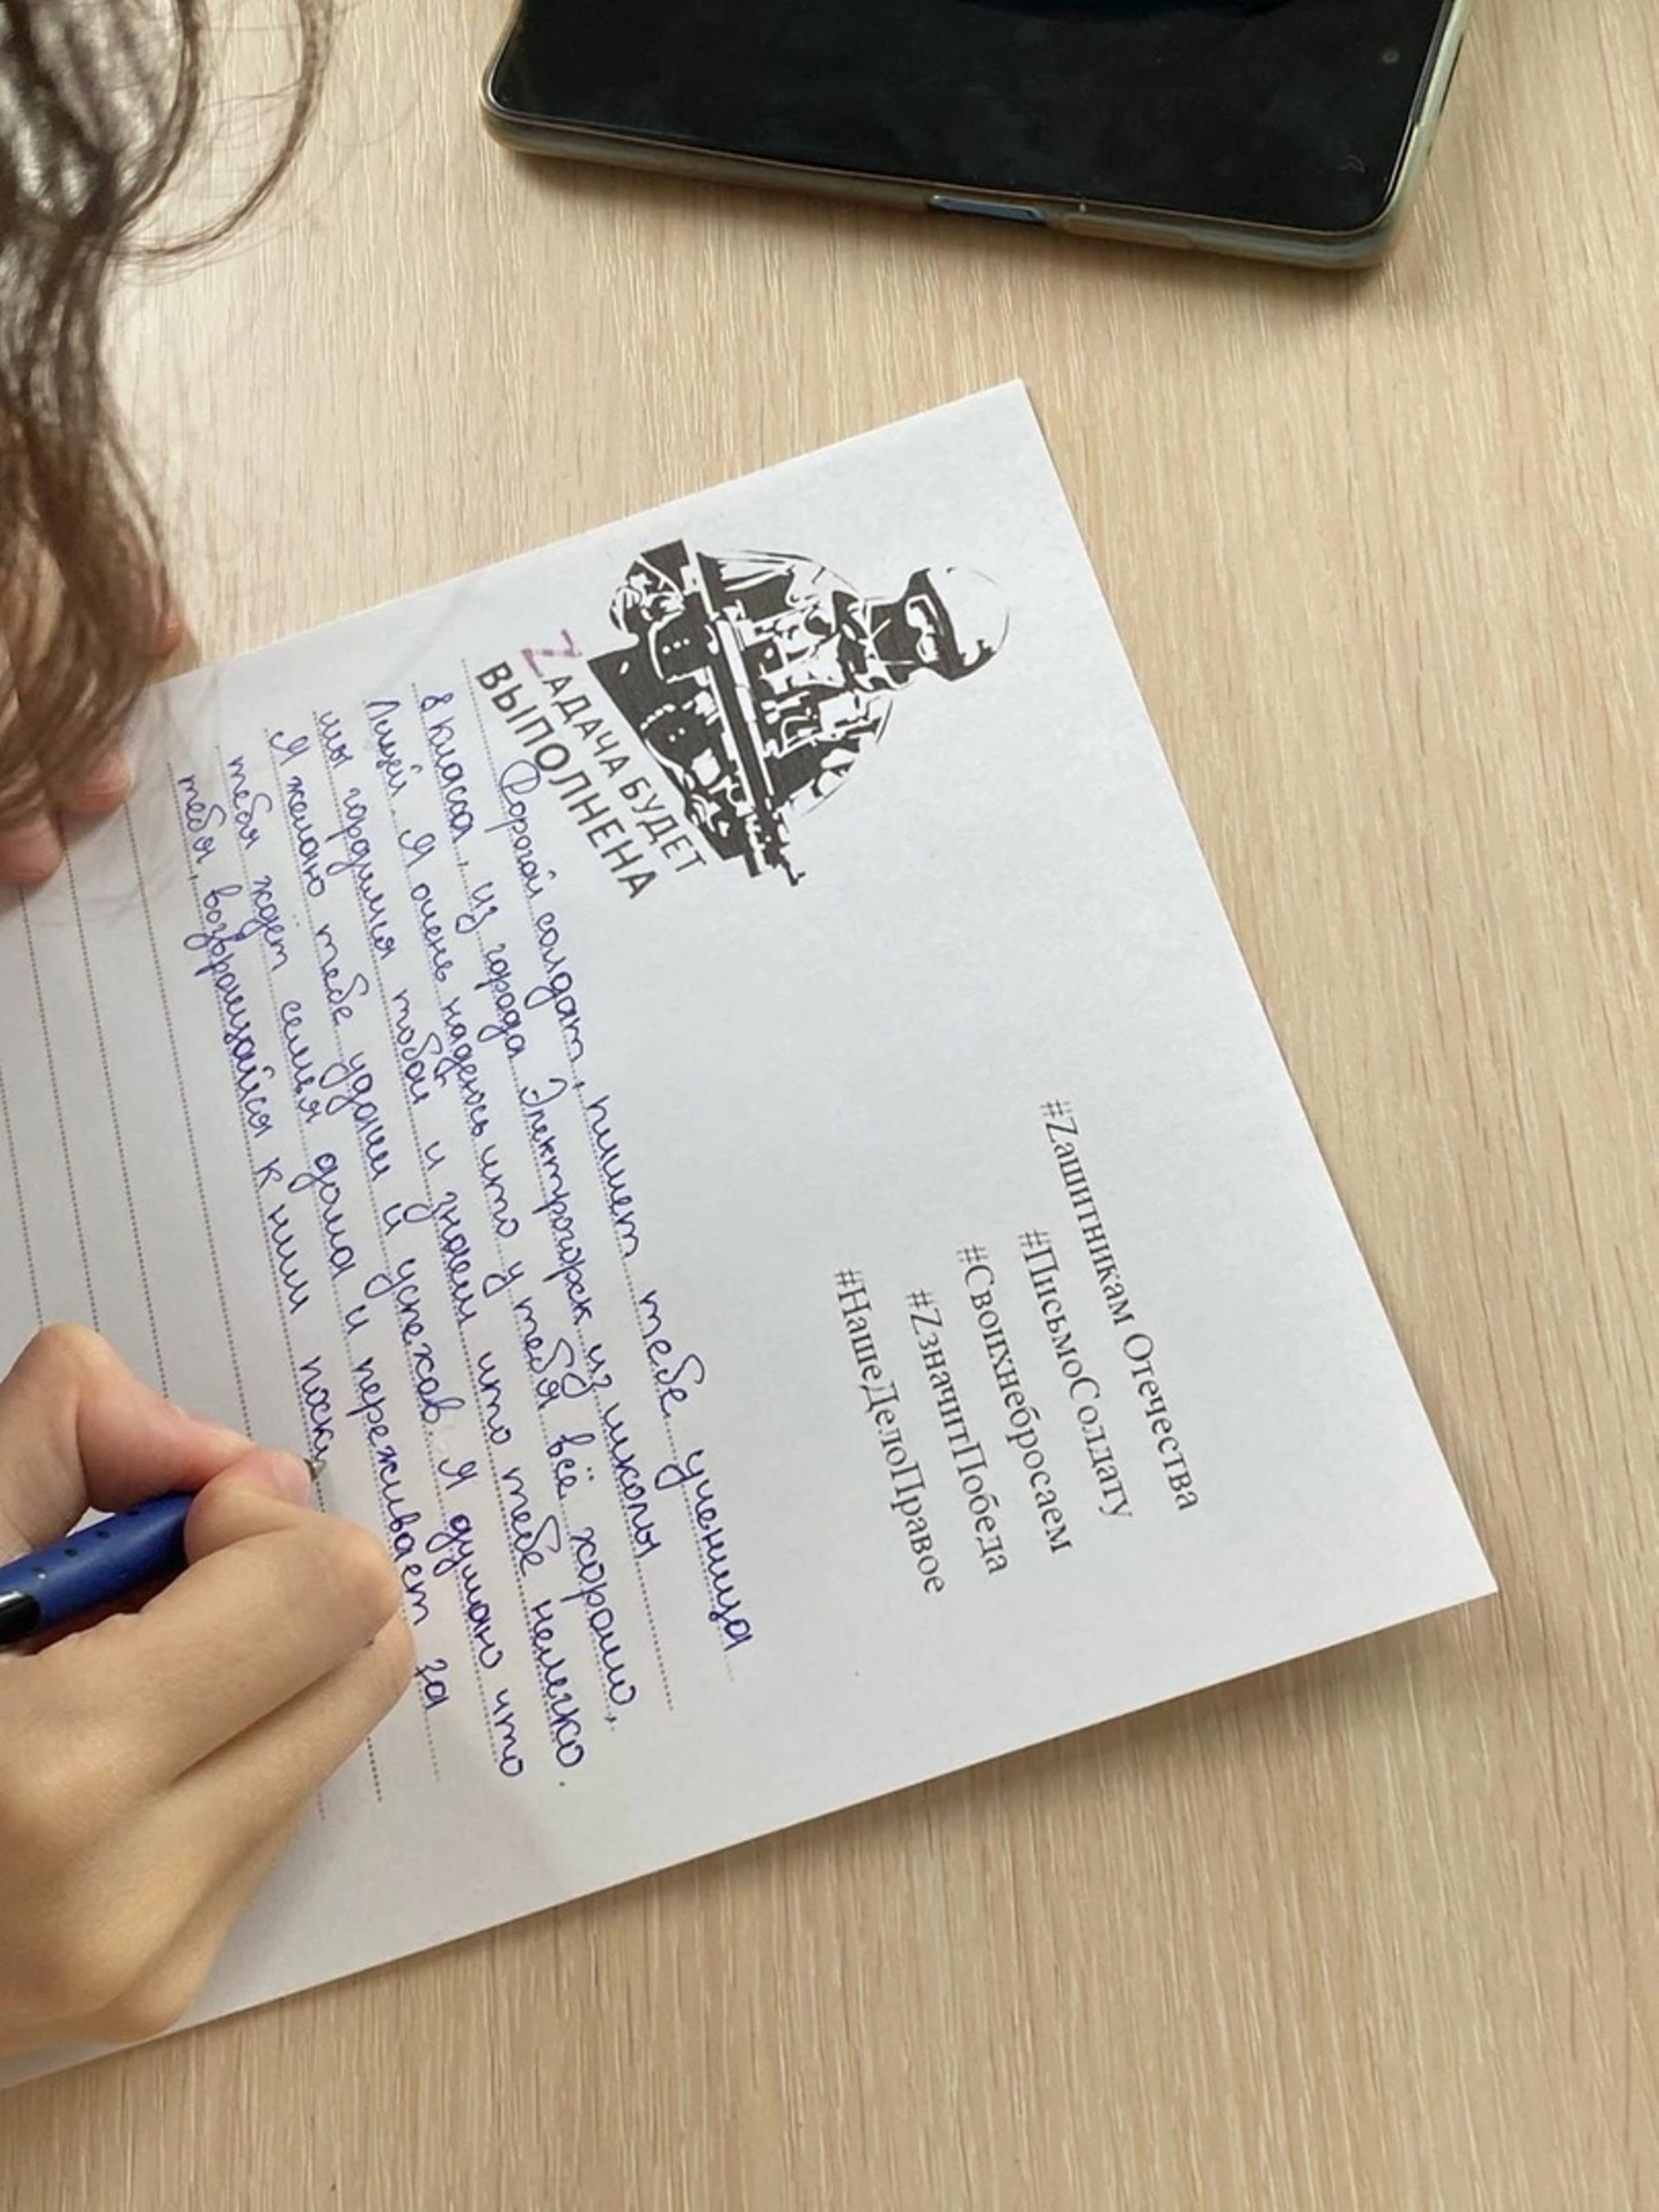 #Zащитникам Отечества
#ПисьмоСолдату
#Своихнебросаем
#ZзначитПобеда
#НашеДелоПравое
ZАДАЧА БУДЕТ
ВЫПОЛНЕНА
Дорогой солдат, пишет тебе ученица
8 класса, из города Электрогорск из школы
Лицей. Я очень надеюсь что у тебя всё хорошо,
мы гордимся тобой и знаем что тебе нелегко.
Я желаю тебе удачи и успехов. Я думаю что
тебя ждёт семья дома и переживает за
тебя, возвращайся к ним